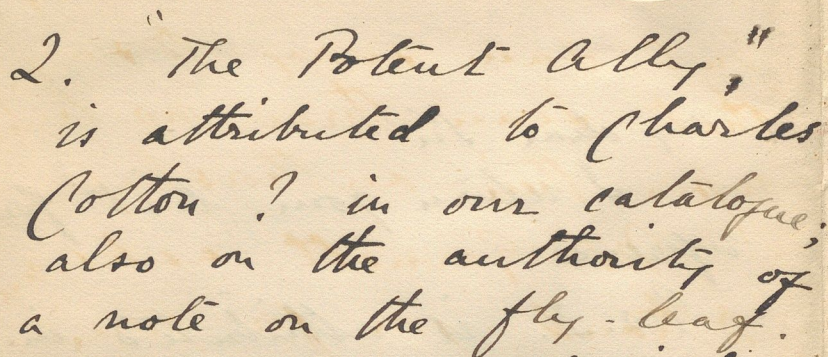 2. "The Potent Ally,"
is attributed to Charles
Cotton ? in our catalogue;
also on the authority of
a note on the fly-leaf.